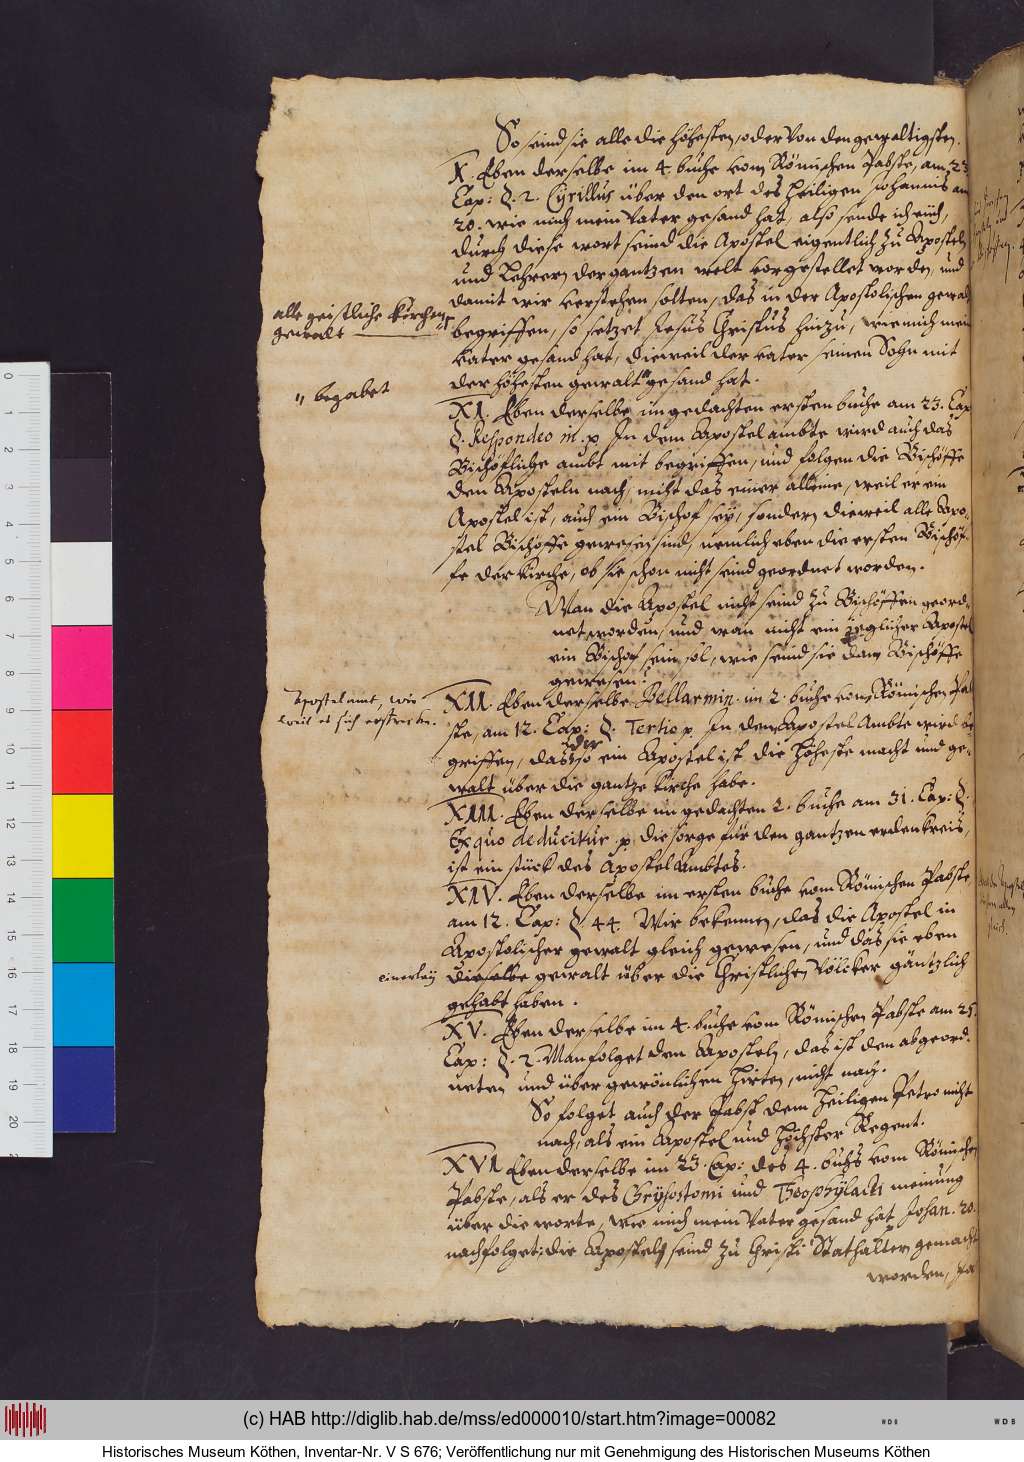 So seind sie alle die höhesten, oder von den gewaltigsten.
X. Eben derselbe im 4. buche vom Römischen Pabste, am 23
Cap: §. 2. Cyrillus über den ort des heiligen Johannis am
20. wie mich mein Vater gesand hat, also sende ich euch,
durch diese wort seind die Apostel eigentlich zu Aposteln
und Lehrern der gantzen welt vorgestellet worden, und
damit wir verstehen solten, das in der Apostolischen gewalt
alle geistliche Kirchen
gewalt
begriffen, so setzet Jesus Christus hinzu, wie mich mein
vater gesand hat, dieweil der vater seinen Sohn mit
der höhesten gewalt " gesand hat.
" begabet
XI. Eben derselbe im gedachten ersten buche am 23. Cap
§. Respondeo in. p In dem Apostel ambte wird auch das
Bischöfliche ambt mit begriffen, und folgen die Bischöffe
den Aposteln nach, nicht das einer alleine, weil er ein
Apostel ist, auch ein Bischof sey, sondern dieweil alle Apo-
stel Bischöffe gewesen sind, nemlich eben die ersten Bischöf-
fe der Kirche, ob sie schon nicht seind geordnet worden.
Wan die Apostel nicht seind zu Bischöffen geord-
net worden, und wan nicht ein jeglicher Apostel
ein Bischof sein sol, wie seind sie dan Bischöffe
gewesen?
Apostelamt, wie
weit es sich erstrecke.
XII. Eben derselbe Bellarmin. im 2. buche vom Römischen Pab
ste, am 12. Cap: §. Tertio p. In dem Apostel Ambte wird be
griffen, das der so ein Apostel ist die höheste macht und ge-
walt über die gantze Kirche habe.
XIII. Eben derselbe im gedachten 2. buche am 31. Cap: §.
Ex quo deducitur. p. die sorge für den gantzen erdenkreis,
ist ein stück des Apostel Ambtes.
XIV. Eben derselbe im ersten buche vom Römischen Pabste,
am 12. Cap: §. 44. Wir bekennen, das die Apostel in
Apostolischer gewalt gleich gewesen, und das sie eben
einerley dieselbe gewalt über die Christlichen Völcker gäntzlich
gehabt haben.
XV. Eben derselbe im 4. buche vom Römischen Pabste am 25.
Cap: §. 2. Man folget den Aposteln, das ist den abgeord-
neten und über gewönlichen hirten, nicht nach.
So folget auch der Pabst dem heiligen Petro nicht
nach, als ein Apostel und höchster Regent.
XVI Eben derselbe im 23. Cap: des 4. buchs vom Römischen
Pabste, als er des Chrysostomi und Theophylacti meinung
über die worte, wie mich mein Vater gesand hat Johan. 20.
nachfolget: die Aposteln seind zu Christi Stathaltern gemacht
worden, Ja
(c) HAB http://diglib.hab.de/mss/ed000010/start.htm?image=00082
Historisches Museum Köthen, Inventar-Nr. V S 676; Veröffentlichung nur mit Genehmigung des Historischen Museums Köthen